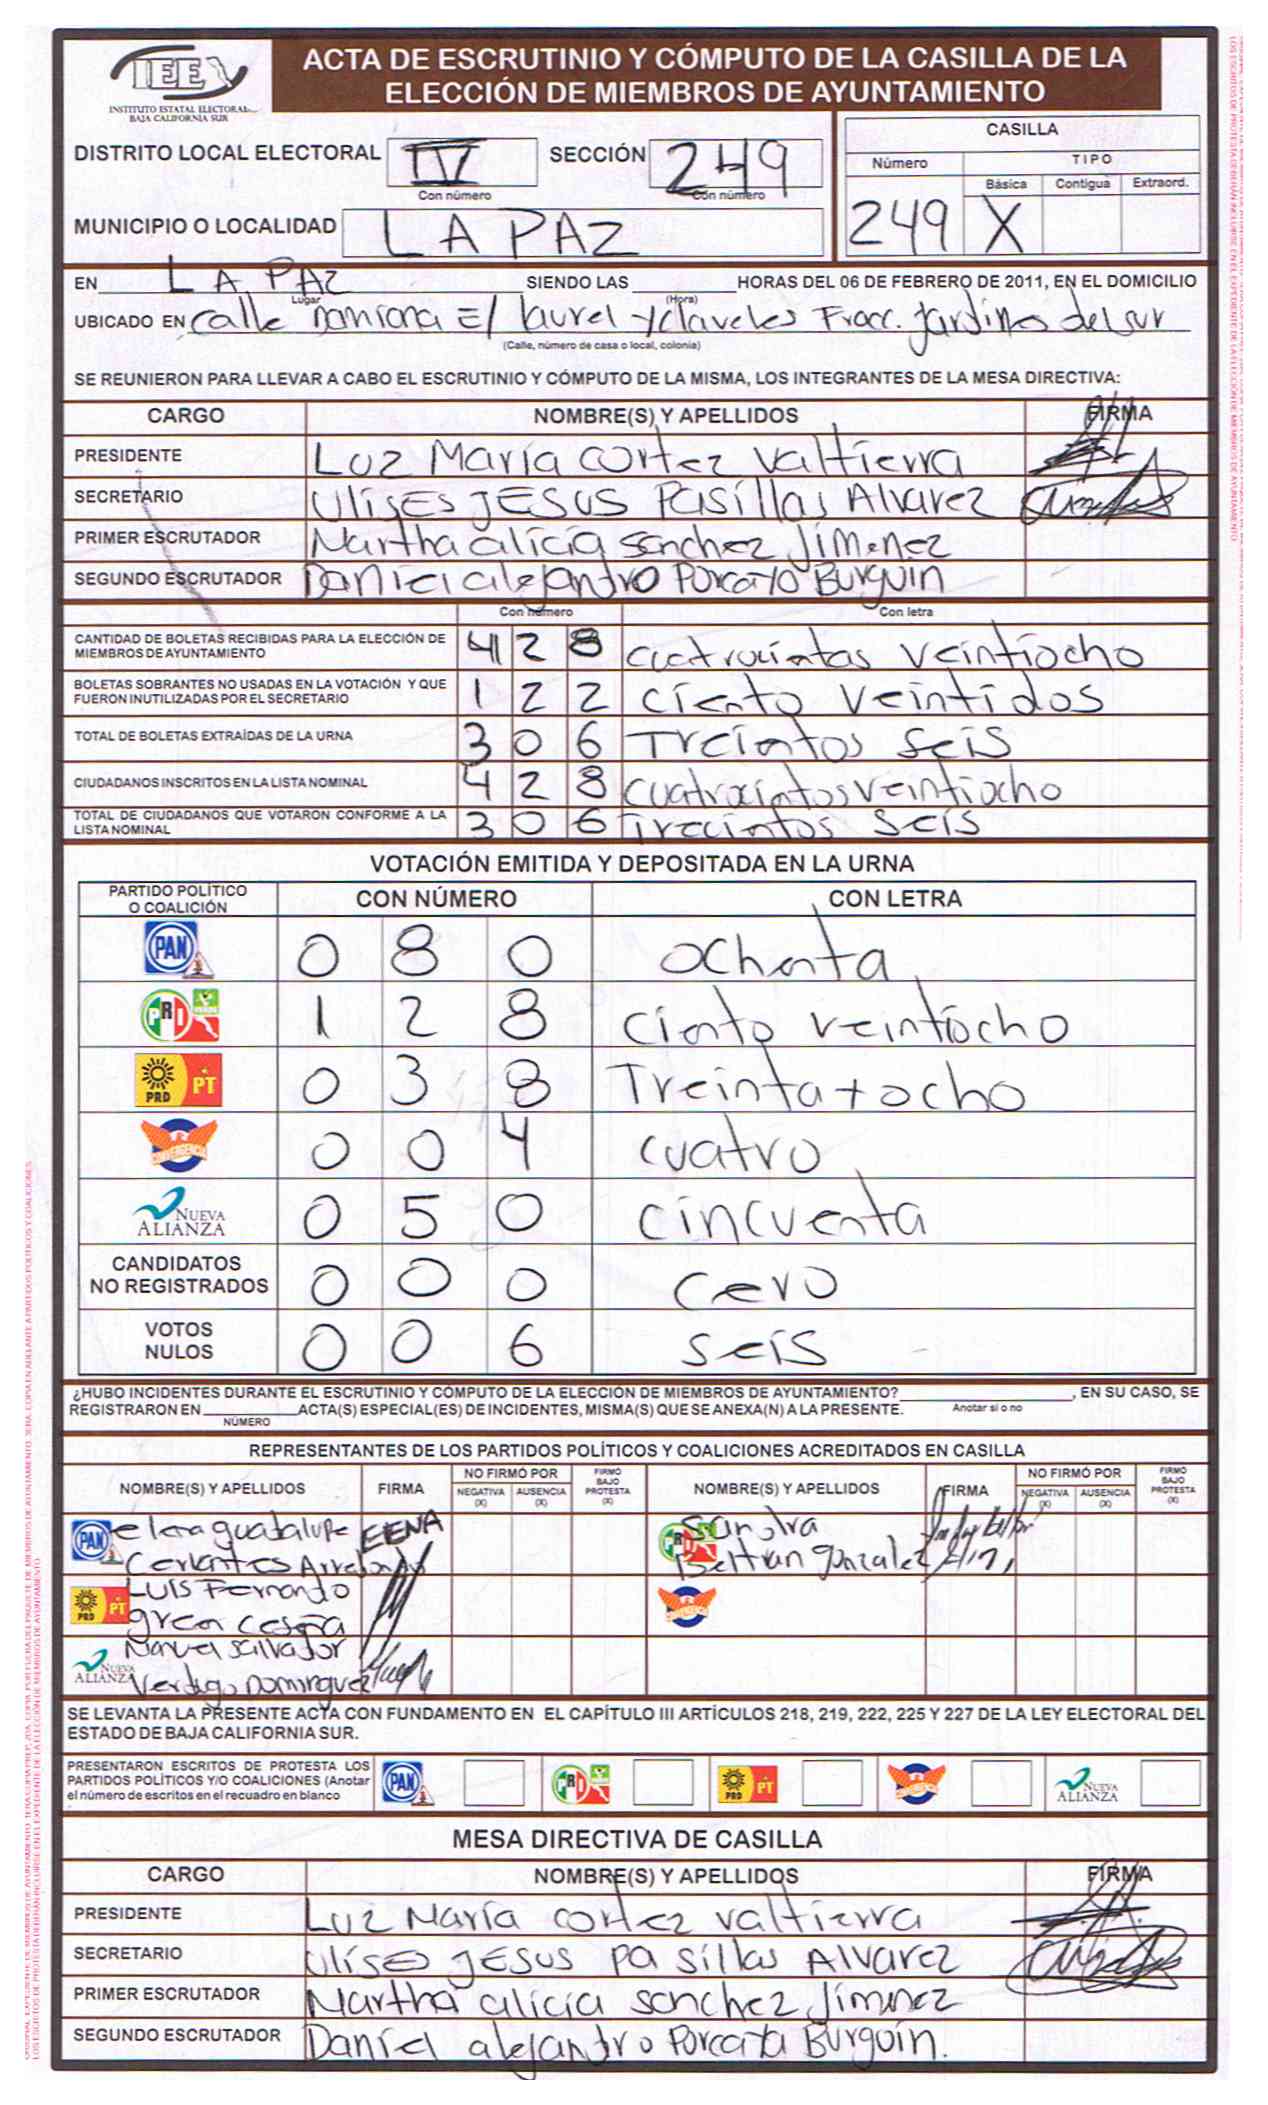 IEE
INSTITUTO ESTATAL ELECTORAL
BAJA CALIFORNIA SUR
ACTA DE ESCRUTINIO Y CÓMPUTO DE LA CASILLA DE LA
ELECCIÓN DE MIEMBROS DE AYUNTAMIENTO
DISTRITO LOCAL ELECTORAL IV SECCIÓN 249
Con número Con número
MUNICIPIO O LOCALIDAD LA PAZ
CASILLA
Número TIPO
Básica Contigua Extraord.
249 X
EN LA PAZ SIENDO LAS HORAS DEL 06 DE FEBRERO DE 2011, EN EL DOMICILIO
Lugar (Hora)
UBICADO EN calle damiana E/ laurel y claveles Fracc. Jardines del sur
(Calle, número de casa o local, colonia)
SE REUNIERON PARA LLEVAR A CABO EL ESCRUTINIO Y CÓMPUTO DE LA MISMA, LOS INTEGRANTES DE LA MESA DIRECTIVA:
CARGO NOMBRE(S) Y APELLIDOS FIRMA
PRESIDENTE Luz María cortez valtierra
SECRETARIO Ulises JESUS Pasillas Alvarez
PRIMER ESCRUTADOR Martha alicia sanchez Jimenez
SEGUNDO ESCRUTADOR Daniel alejandro Porcayo Burguin
Con número Con letra
CANTIDAD DE BOLETAS RECIBIDAS PARA LA ELECCIÓN DE
MIEMBROS DE AYUNTAMIENTO 428 cuatrocientas veintiocho
BOLETAS SOBRANTES NO USADAS EN LA VOTACIÓN Y QUE
FUERON INUTILIZADAS POR EL SECRETARIO 122 ciento veintidos
TOTAL DE BOLETAS EXTRAÍDAS DE LA URNA 306 Treientos seis
CIUDADANOS INSCRITOS EN LA LISTA NOMINAL 428 cuatrocientos veintiocho
TOTAL DE CIUDADANOS QUE VOTARON CONFORME A LA
LISTA NOMINAL 306 Trecientos seis
VOTACIÓN EMITIDA Y DEPOSITADA EN LA URNA
PARTIDO POLÍTICO
O COALICIÓN CON NÚMERO CON LETRA
PAN 0 8 0 ochenta
PRI VERDE 1 2 8 ciento veintiocho
PRD PT 0 3 8 Treinta + ocho
CONVERGENCIA 0 0 4 cuatro
NUEVA ALIANZA 0 5 0 cincuenta
CANDIDATOS
NO REGISTRADOS 0 0 0 cero
VOTOS
NULOS 0 0 6 seis
¿HUBO INCIDENTES DURANTE EL ESCRUTINIO Y CÓMPUTO DE LA ELECCIÓN DE MIEMBROS DE AYUNTAMIENTO? , EN SU CASO, SE
REGISTRARON EN ACTA(S) ESPECIAL(ES) DE INCIDENTES, MISMA(S) QUE SE ANEXA(N) A LA PRESENTE. Anotar si o no
NÚMERO
REPRESENTANTES DE LOS PARTIDOS POLÍTICOS Y COALICIONES ACREDITADOS EN CASILLA
NOMBRE(S) Y APELLIDOS FIRMA NO FIRMÓ POR NEGATIVA (X) AUSENCIA (X) FIRMÓ BAJO PROTESTA (X) NOMBRE(S) Y APELLIDOS FIRMA NO FIRMÓ POR NEGATIVA (X) AUSENCIA (X) FIRMÓ BAJO PROTESTA (X)
PAN elena guadalupe PRI Sandra
Cervantes Arredondo Beltran Gonzalez
PRD PT Luis Fernando CONVERGENCIA
green ceseña
NUEVA ALIANZA Manuel Salvador
Verdugo Dominguez
SE LEVANTA LA PRESENTE ACTA CON FUNDAMENTO EN EL CAPÍTULO III ARTÍCULOS 218, 219, 222, 225 Y 227 DE LA LEY ELECTORAL DEL
ESTADO DE BAJA CALIFORNIA SUR.
PRESENTARON ESCRITOS DE PROTESTA LOS
PARTIDOS POLÍTICOS Y/O COALICIONES (Anotar
el número de escritos en el recuadro en blanco
PAN PRI PRD PT CONVERGENCIA NUEVA ALIANZA
MESA DIRECTIVA DE CASILLA
CARGO NOMBRE(S) Y APELLIDOS FIRMA
PRESIDENTE Luz María cortez valtierra
SECRETARIO Ulises JESUS pasillas Alvarez
PRIMER ESCRUTADOR Martha alicia sanchez Jimenez
SEGUNDO ESCRUTADOR Daniel alejandro Porcayo Burguin.